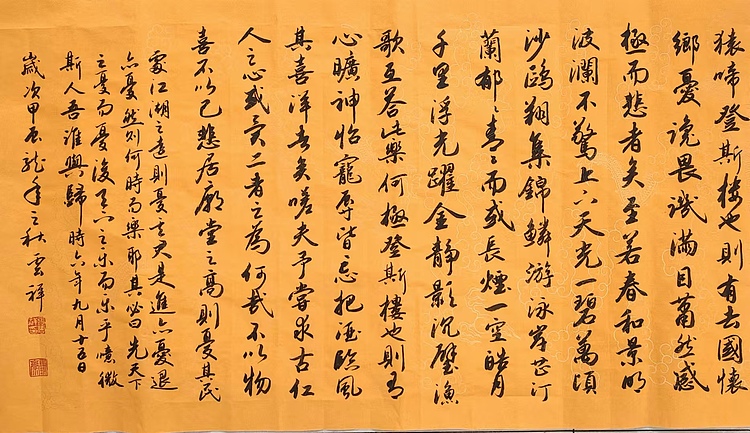 猿啼登斯樓也則有去國懷
鄉憂讒畏譏滿目蕭然感
極而悲者矣至若春和景明
波瀾不驚上下天光一碧萬頃
沙鷗翔集錦鱗游泳岸芷汀
蘭郁〻青〻而或長煙一空皓月
千里浮光躍金靜影沉璧漁
歌互答此樂何極登斯樓也則有
心曠神怡寵辱皆忘把酒臨風
其喜洋者矣嗟夫予嘗求古仁
人之心或異二者之為何哉不以物
喜不以己悲居廟堂之高則憂其民
處江湖之遠則憂其君是進亦憂退
亦憂然則何時而樂耶其必曰先天下
之憂而憂後天下之樂而樂乎噫微
斯人吾誰與歸時六年九月十五日
歲次甲辰龍年之秋雲祥